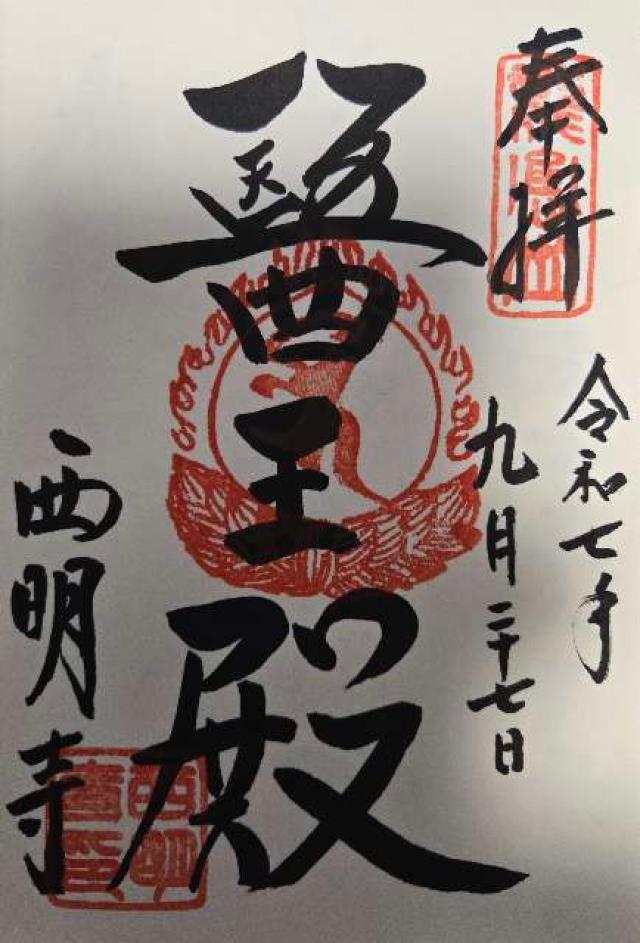 奉拝
令和七年
九月二十七日
醫王殿
西明寺